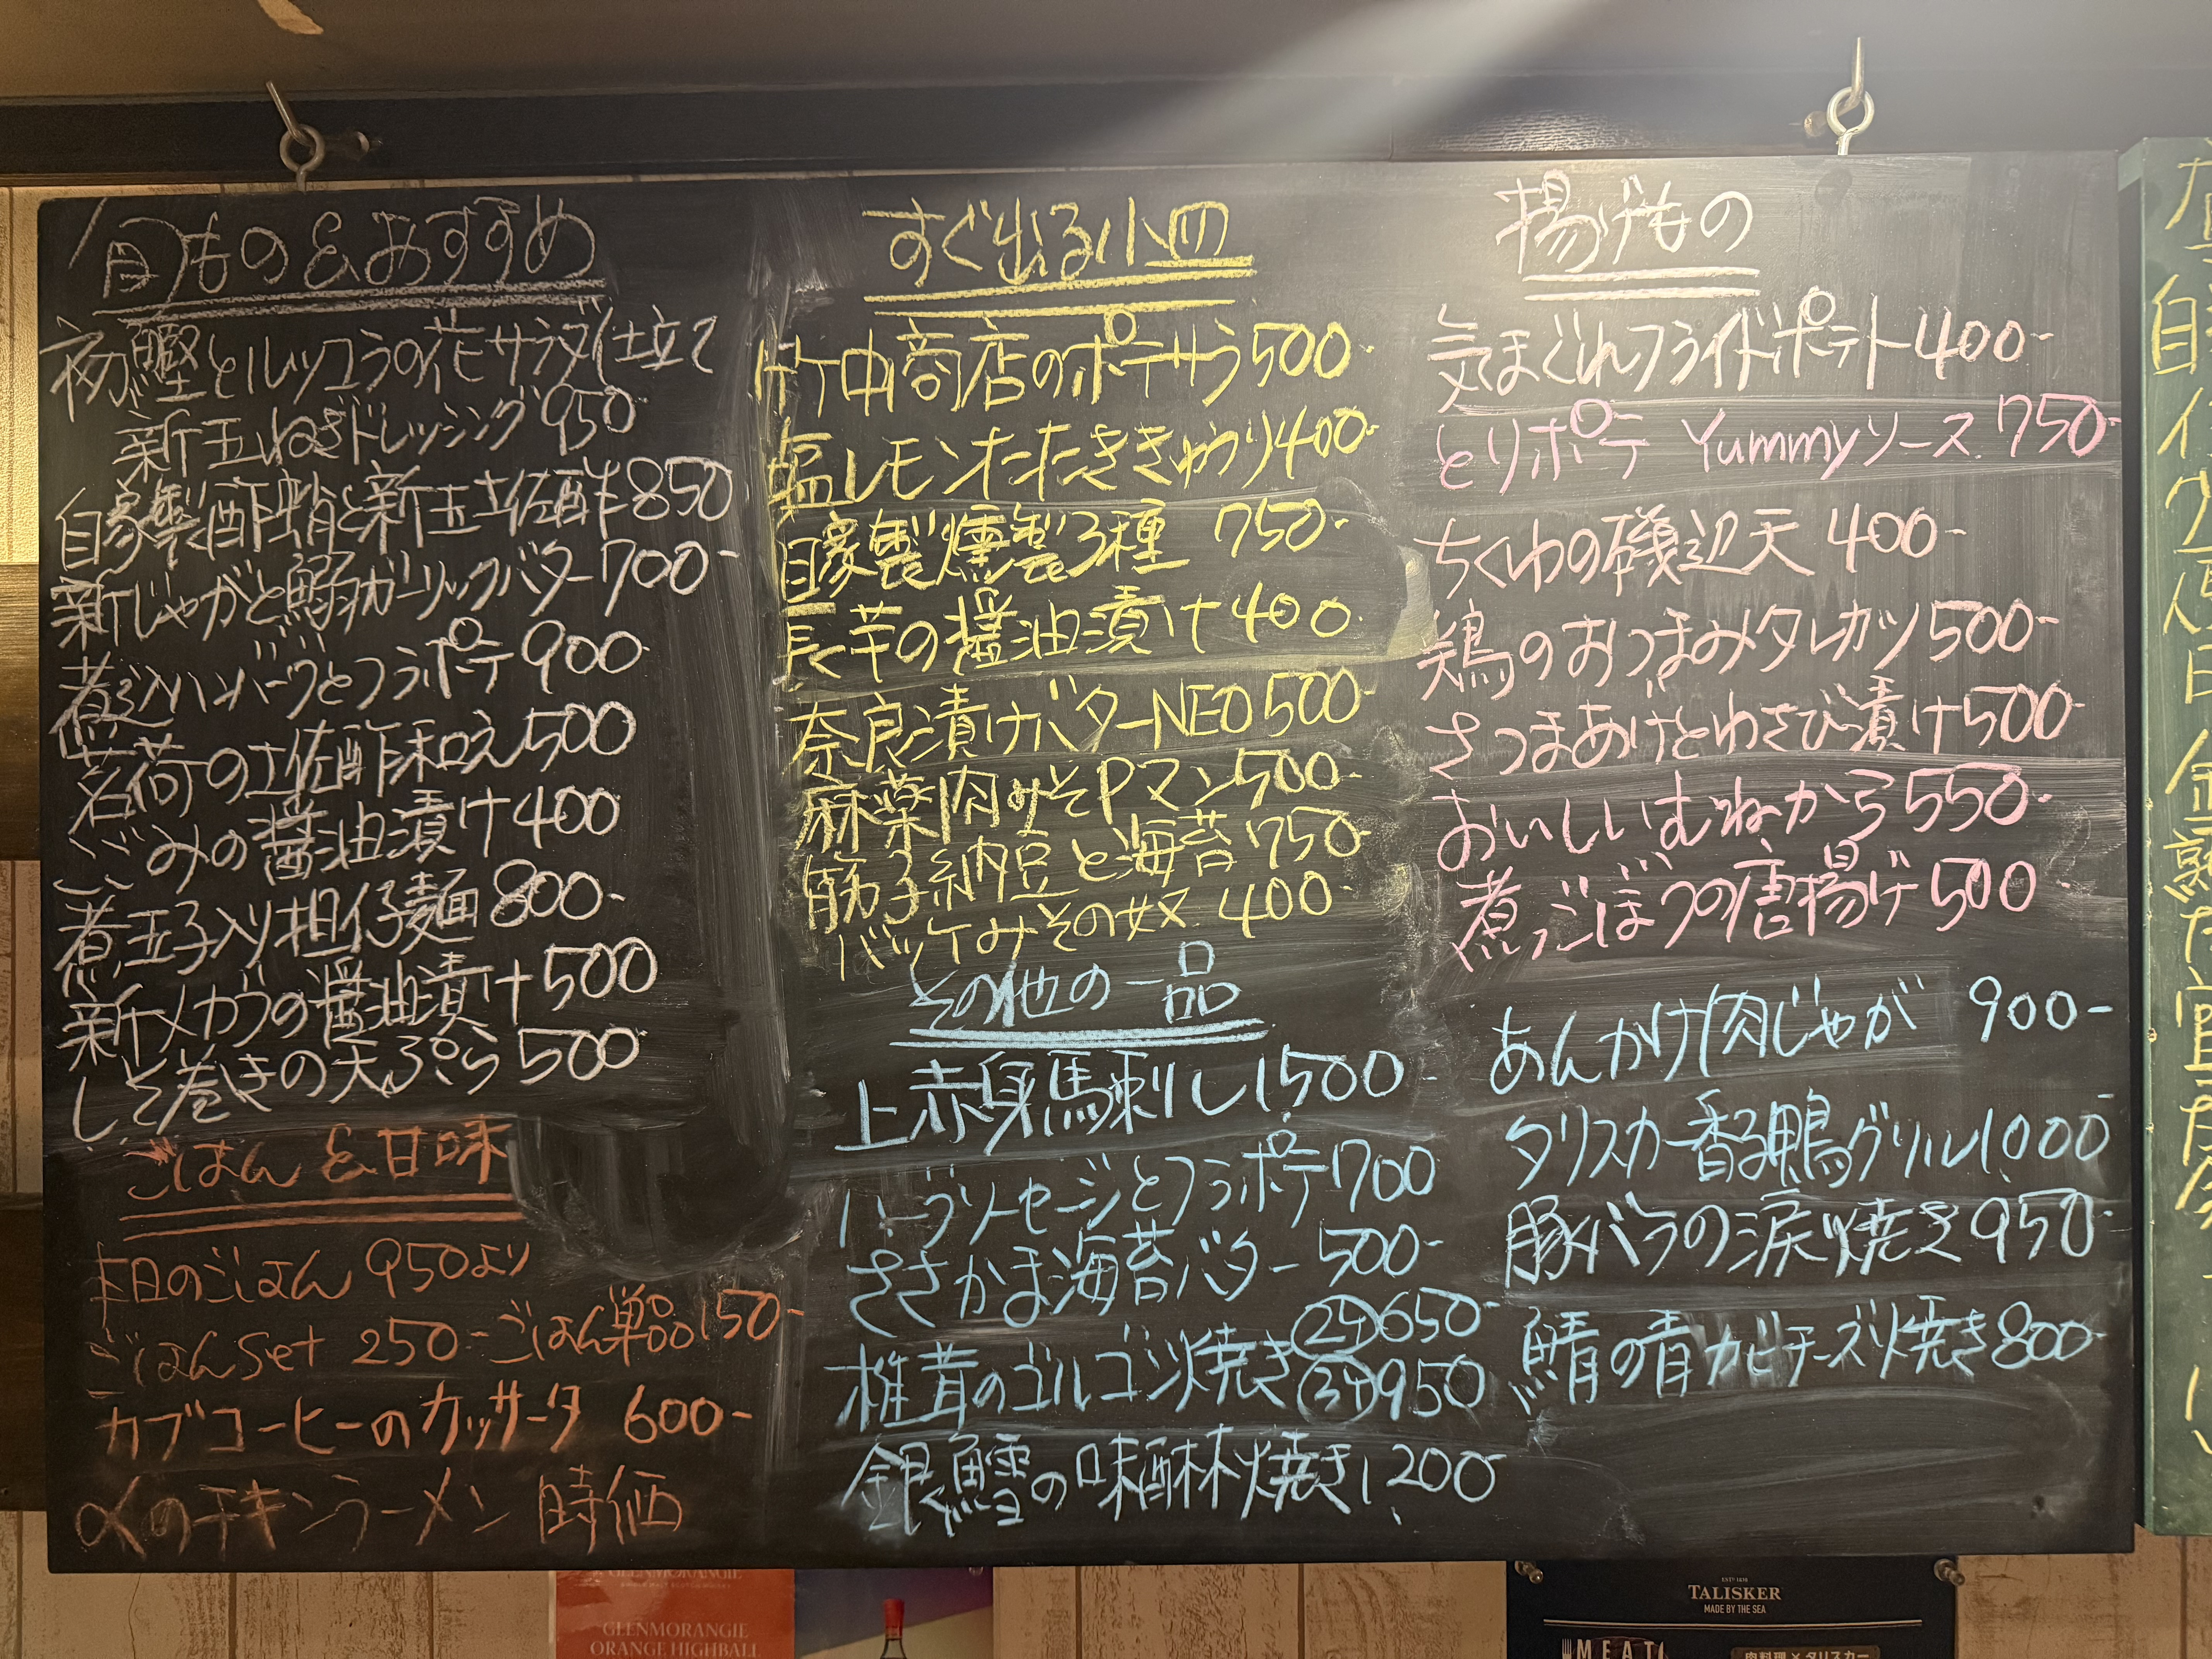 旬もの&おすすめ
初鰹とルッコラの花サラダ仕立て
新玉ねぎドレッシング 950
自家製酢蛸と新玉土佐酢 850
新じゃがと鰯ガーリックバター 700-
煮込ハンバーグとフラポテ 900
茗荷の土佐酢和え 500
ぐみの醤油漬け 400
煮玉子入り担仔麺 800-
新メカブの醤油漬け 500
しそ巻きの天ぷら 500
ごはん & 甘味
本日のごはん 950より
ごはんSet 250- ごはん単品 150-
カブコーヒーのカッサータ 600-
〆のチキンラーメン 時価
すぐ出る小皿
竹中商店のポテサラ 500-
塩レモンたたききゅうり 400-
自家製燻製3種 750-
長芋の醤油漬け 400.
奈良漬けバターNEO 500-
麻薬肉みそPマン 500-
筋子納豆と海苔 750-
バッケみその奴 400-
その他の一品
上赤身馬刺し 1500-
ハーブソーセージとフラポテ 700
ささかま海苔バター 500-
椎茸のゴルゴンゾーラ焼き
650-
950
銀鱈の味醂焼き 1,200-
揚げもの
気まぐれフライドポテト 400-
とりポテ Yummyソース 750-
ちくわの磯辺天 400-
鶏のおつまみタレカツ 500-
さつまあげとわさび漬け 500-
おいしいむねから 550-
煮ごぼうの唐揚げ 500
あんかけ肉じゃが 900-
タリスカー香る鴨グリル 1,000
豚バラの涙焼き 950-
鯖の青カビチーズ焼き 800-
GLENMORANGIE
GLENMORANGIE
ORANGE HIGHBALL
TALISKER
MADE BY THE SEA
MEAT
肉料理×タリスカー